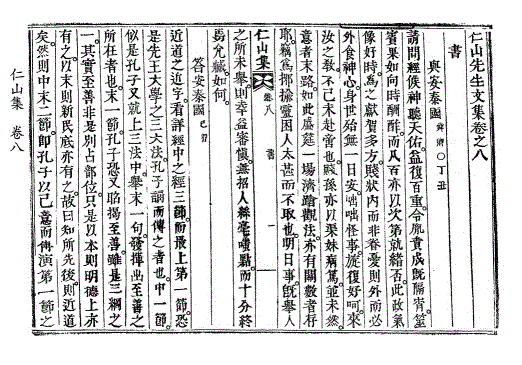 仁山先生文集卷之八
書
與安秦國 丁丑
請問經候神聽天佑益復百重令胤賁成旣隔宵筮
賓果如向時酬酢而凡百亦以次第就緖否此故氣
像好時爲之獻賀多方賤狀內而非眷愛則外而必
外食神心身世殆無一日安咄咄怪事旋復好呵來
汝之敎不已未赴甞也賤孫亦以渠妹病篤並未然
意者末路如此盛筵一場濟蹌觀法亦有關數者存
耶竊爲揶揄靈因人太甚而不取也明日事旣舉人
仁山集 卷八 書 一
之所未舉則幸益審愼無招人絲毫嘆點而十分終
曷允緘如何
答安秦國 己丑
近道之近字看詳經中之經三節而最上第一節恐
是先王大學之三大法孔子謂而傳之者也中一節
似是孔子又就上三法中舉末一句發揮出至善之
所在者也末一節孔子恐又臨揭至善雖是三綱之
一其實至善非是別占部位只是以本則明德上亦
有之以末則新民底亦有之故曰知所先後則近道
矣然則中末二節卽孔子以己意而傳演第一節之
仁山集 卷八